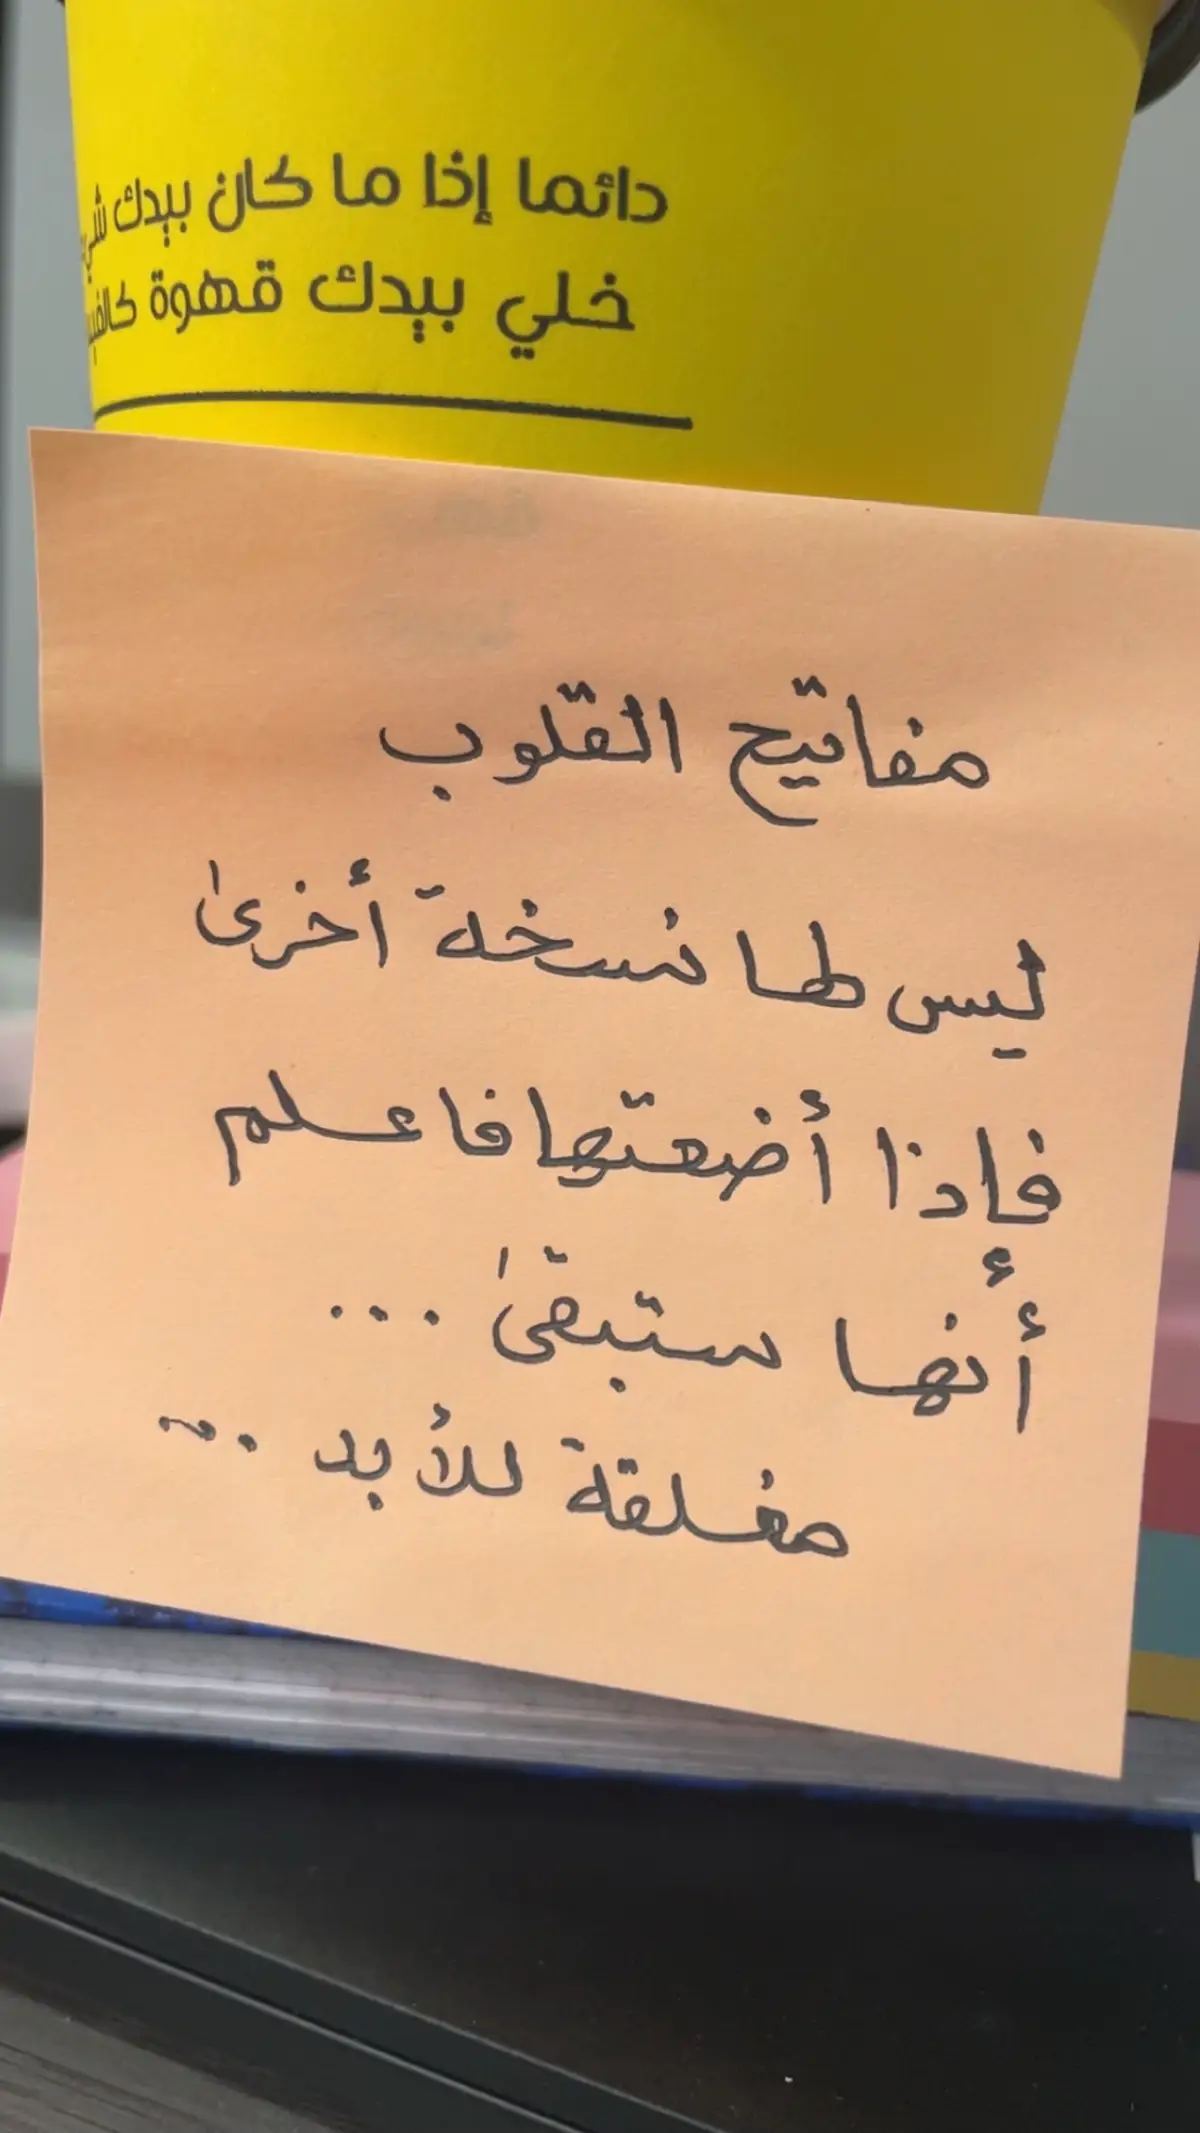 دائما إذا ما كان بيدك
خلي بيدك قهوة
مفاتيح القلوب
ليس لها نسخة أخرى
فإذا أضعتها فاعلم
أنها ستبقى ...
مغلقة للأبد ...